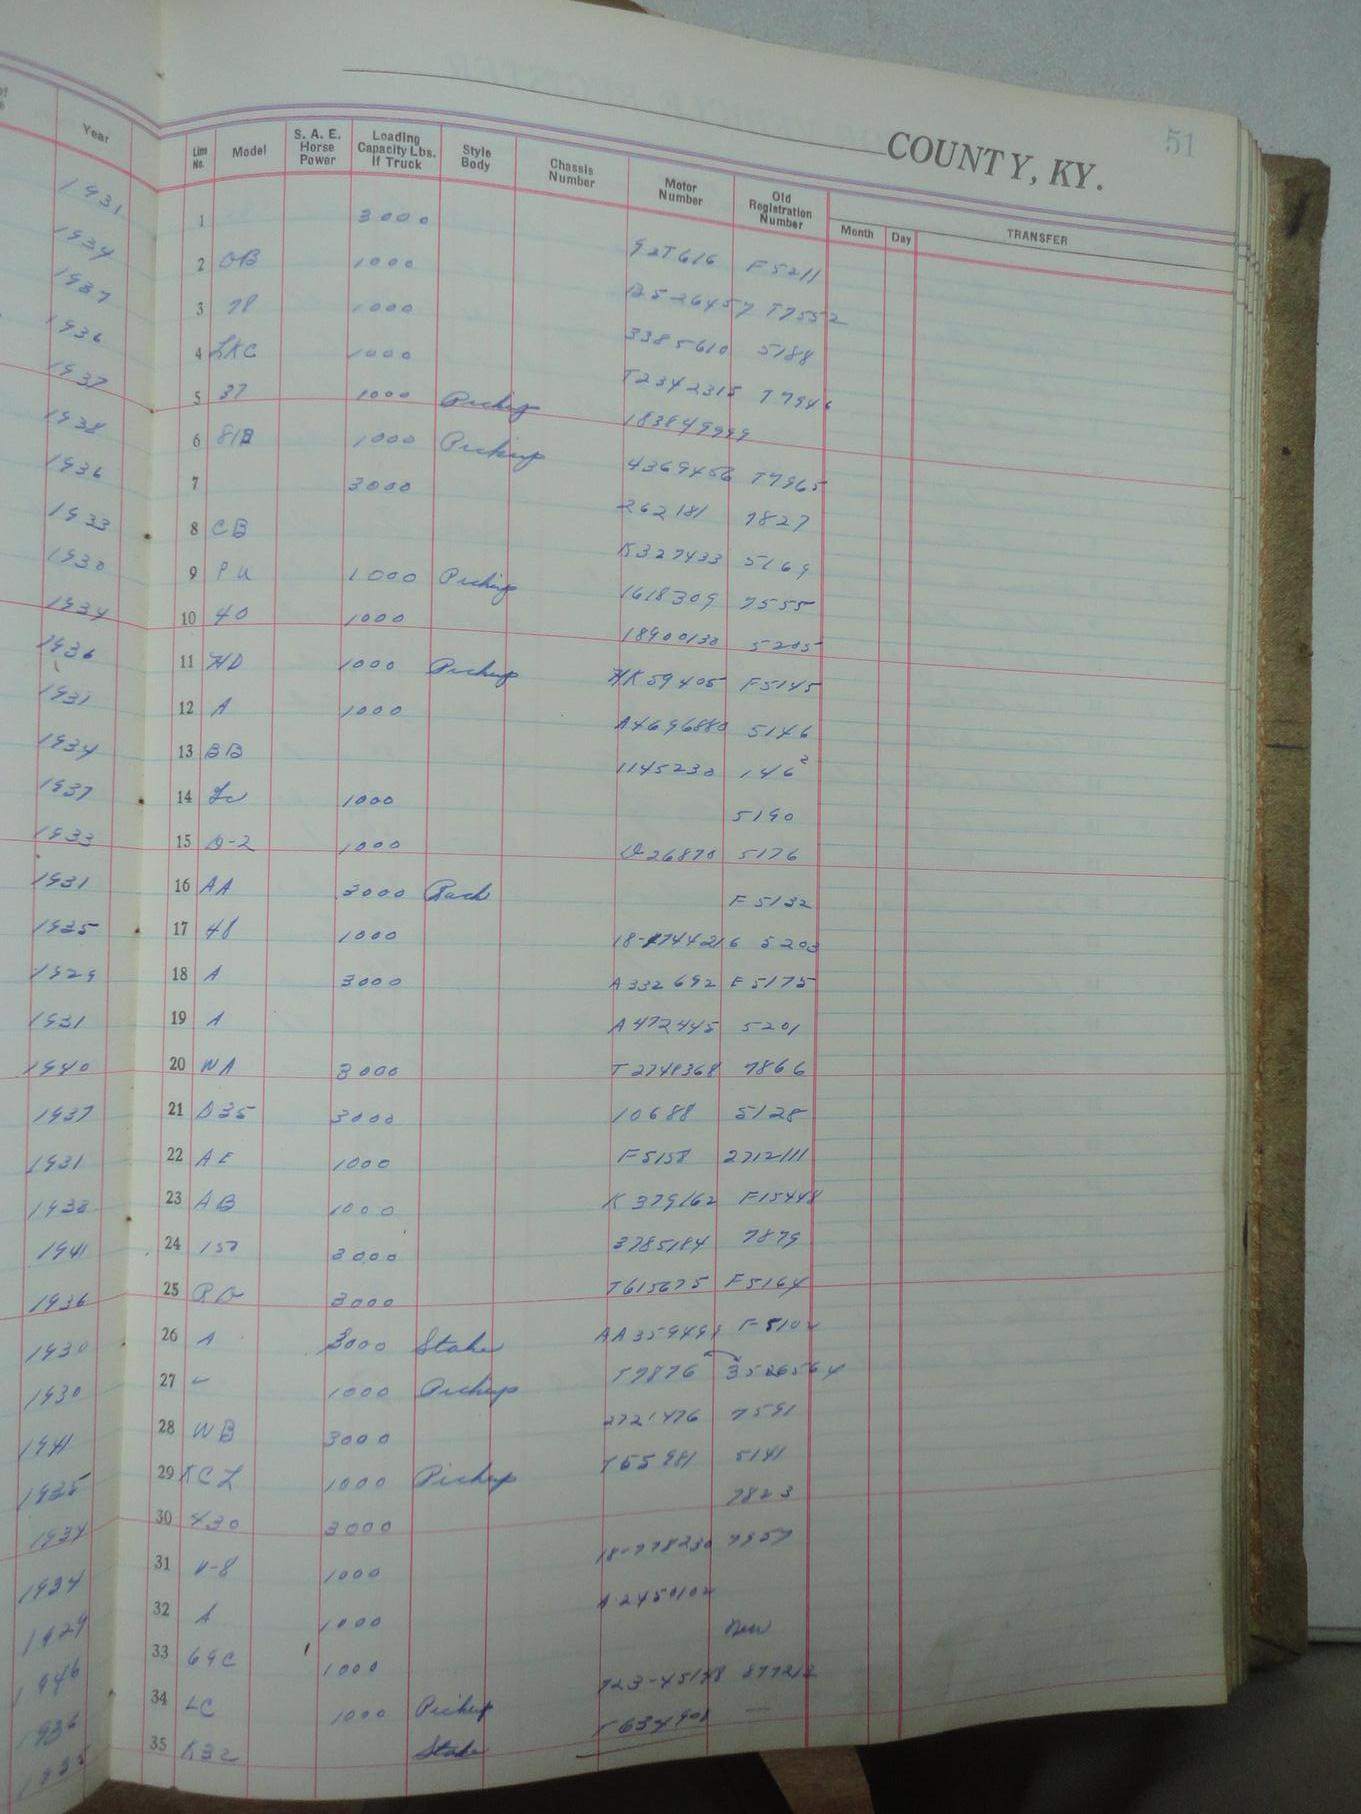 51
COUNTY, KY.
Year Line No. Model S. A. E. Horse Power Loading Capacity Lbs. If Truck Style Body Chassis Number Motor Number Old Registration Number Month Day TRANSFER
1931 1 3000 92T616 F5211
1934 2 OB 1000 B526457 T7552
1937 3 78 1000 3385610 5188
1936 4 LKC 1000 T2342315 T7946
1937 5 37 1000 Pickup 183849999
1938 6 81B 1000 Pickup 4369456 T7965
1936 7 3000 262181 7827
1933 8 CB K327433 5169
1930 9 PU 1000 Pickup 1618309 7555
1934 10 40 1000 18900130 5205
1936 11 HD 1000 Pickup HK59405 F5145
1931 12 A 1000 A4696880 5146
1934 13 BB 1145230 1462
1937 14 1000 5190
1933 15 D-2 1000 26870 5176
1931 16 AA 3000 Rack F5132
1935 17 48 1000 18-1744216 5203
1929 18 A 3000 A332692 F5175
1931 19 A A472445 5201
1940 20 WA 3000 T2748368 7866
1937 21 D35 3000 10688 5128
1931 22 AE 1000 F5158 2712111
1938 23 AB 1000 K379162 F15448
1941 24 3000 3785184 7879
1936 25 3000 T615675 F5164
1930 26 A 3000 Stake AA359499
1930 27 1000 Pickup T7876 3526564
1941 28 WB 3000 2721476 7591
1935 29 KCL 1000 Pickup T55981 5141
1934 30 430 3000 7823
1934 31 V-8 1000 18-778230 7957
1929 32 A 1000 A2450102
1946 33 69C 1000 New
1936 34 LC 1000 Pickup 723-45148 877212
1935 35 K32 Stake T634901 —